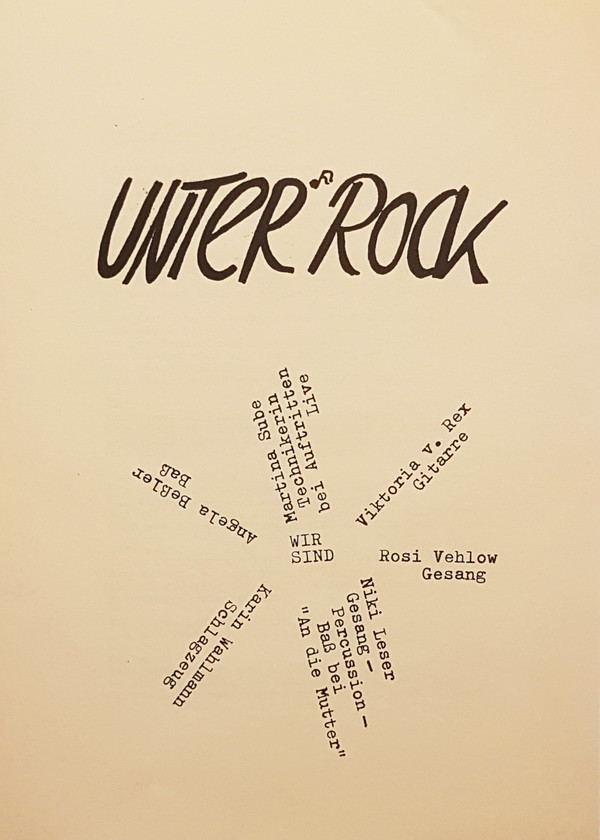 UNTER ROCK
Martina Sube
Technikerin
bei Auftritten
Live
Viktoria v. Rex
Gitarre
Angela Beßler
Baß
WIR
SIND
Rosi Vehlow
Gesang
Niki Leser
Gesang —
Percussion —
Baß bei
"An die Mutter"
Karin Wahlmann
Schlagzeug